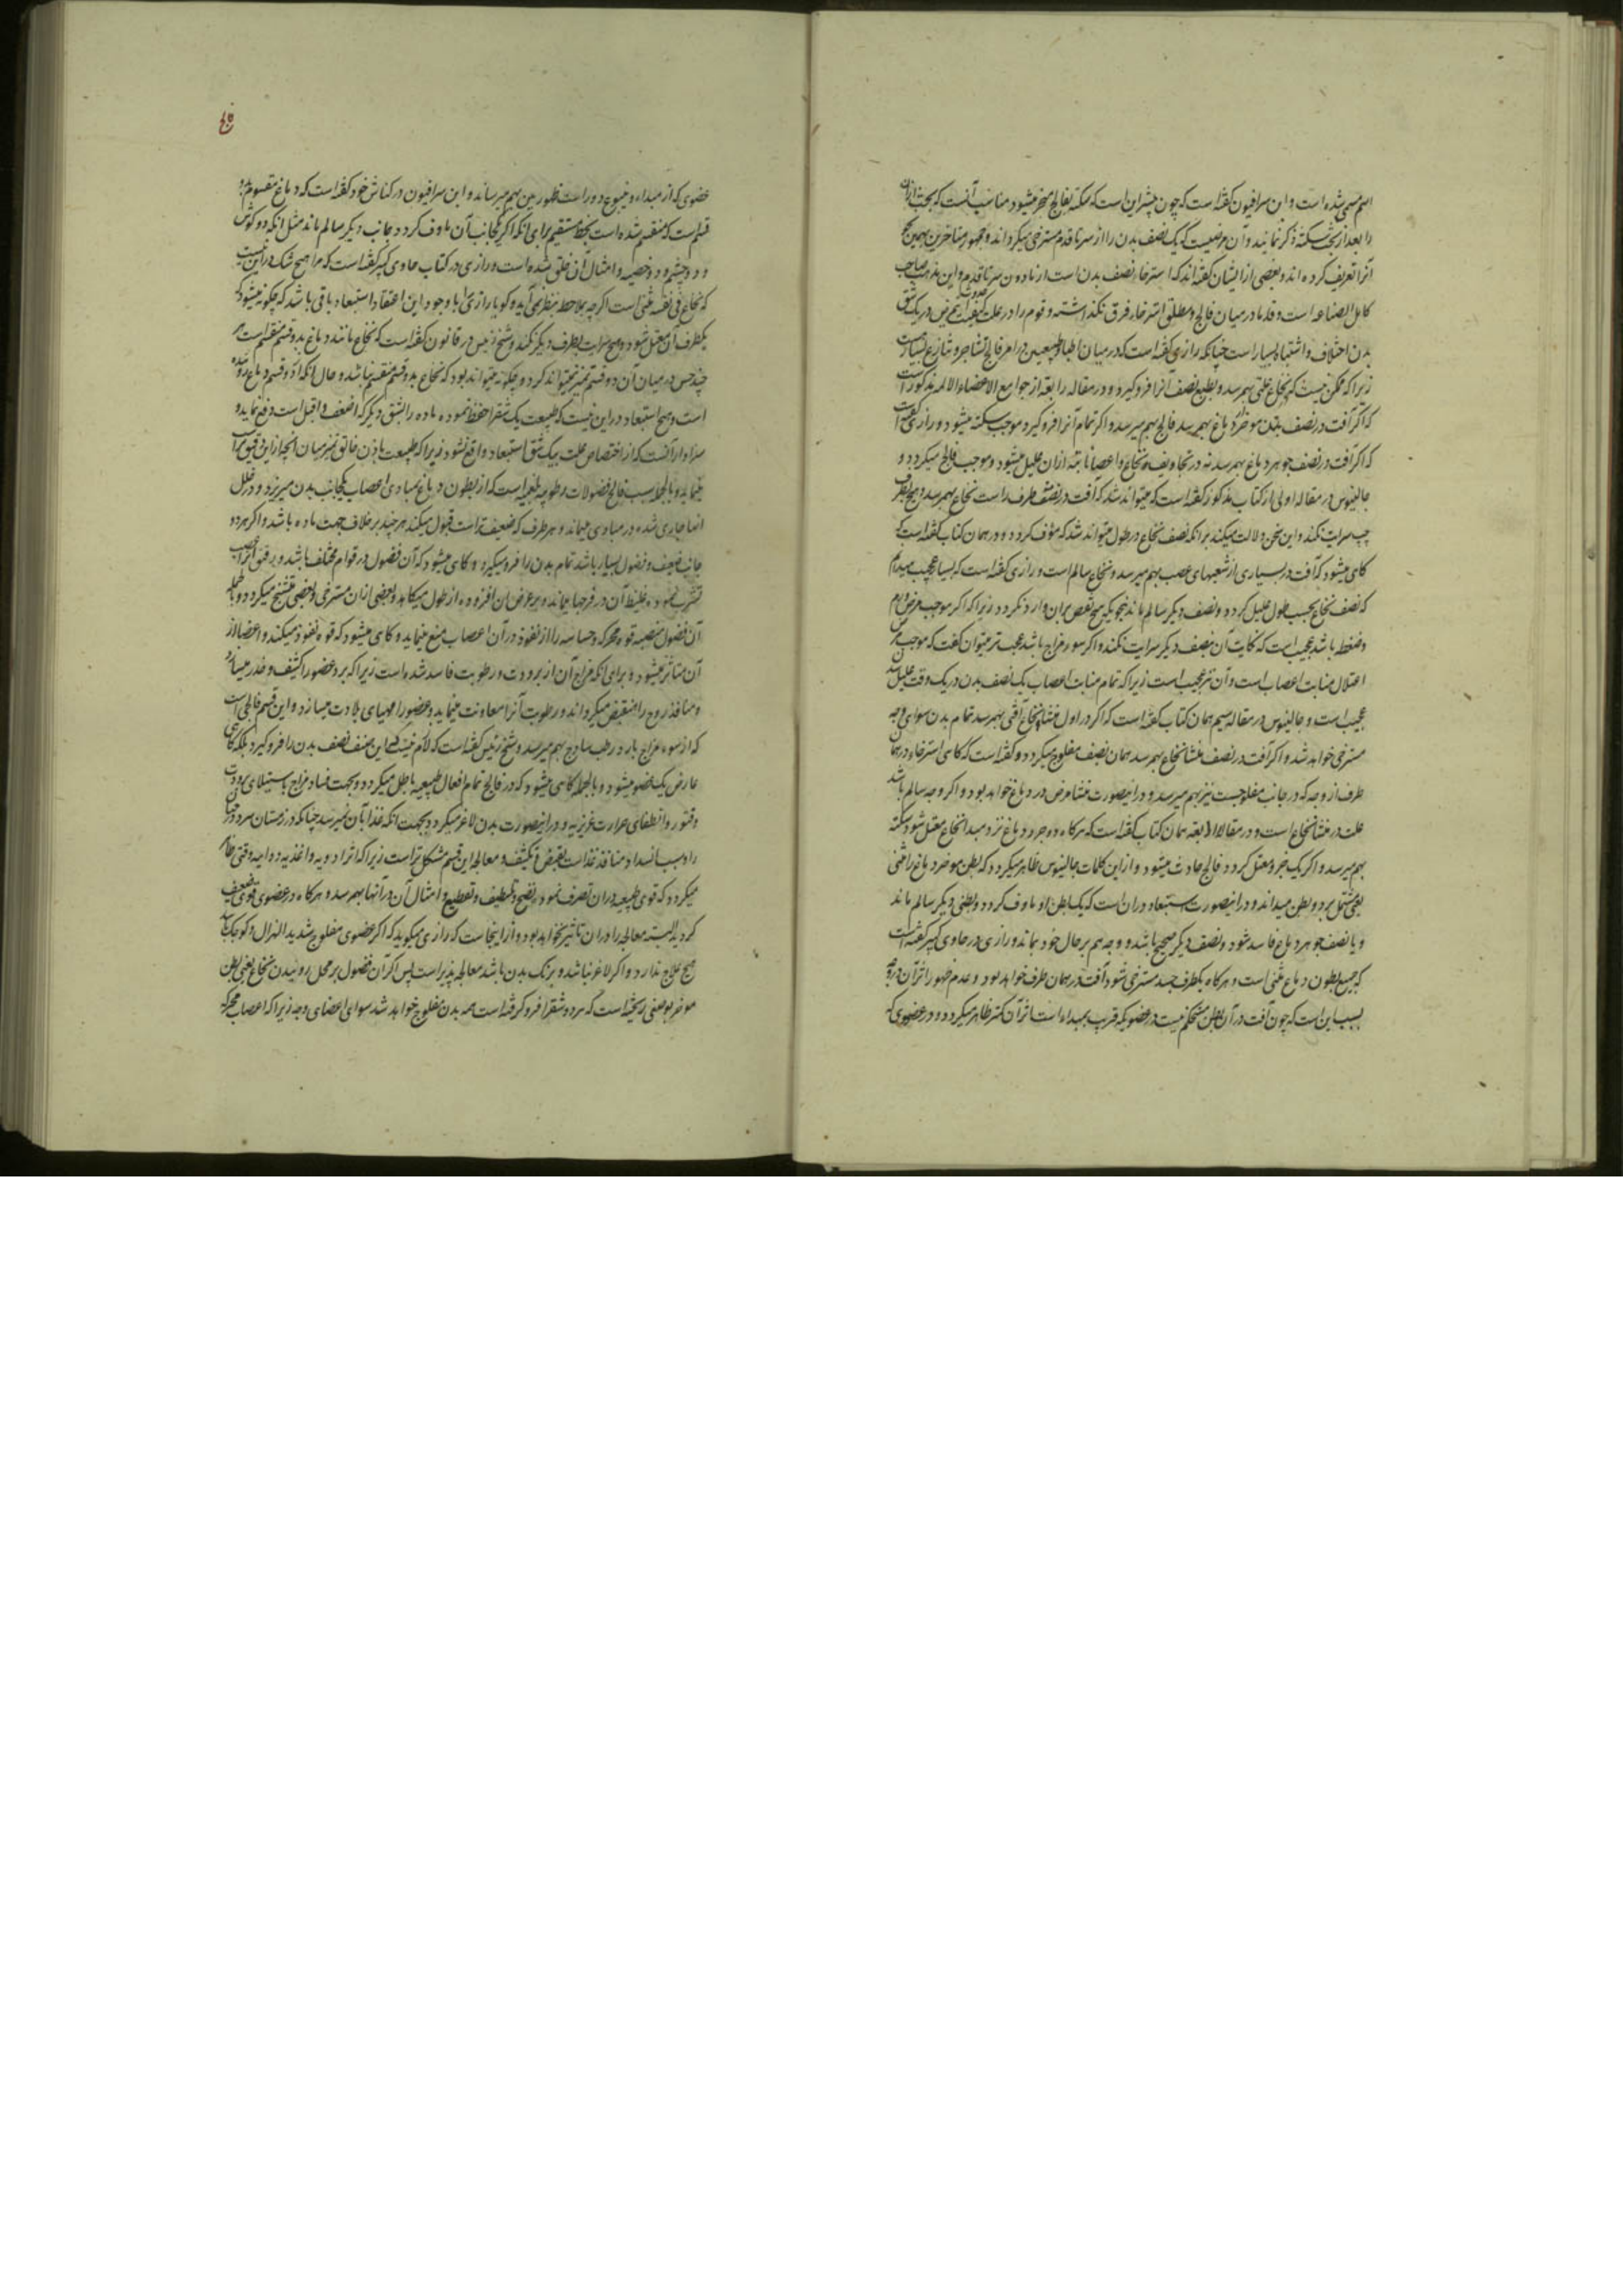 اسم مسمی شده است و ابن سرافیون گفته است که چون بیشتر این است که سکته بفالج منجر میشود مناسب آنست که بحث ازان
را بعد از بحث سکته ذکر نمایند و آن مرضیست که یک نصف بدن را از سر تا قدم مسترخی میگرداند و جمهور متاخرین بهمین نهج
آنرا تعریف کرده اند و بعضی از ایشان گفته اند که استرخاء نصف بدن است از مادون سر تا قدم و این مذهب صاحب
کامل الصناعه است و قدما در میان فالج و مطلق استرخاء فرق نگذاشته و قوم را در علت حدوث این مرض در یک شق
بدن اختلاف و اشتباه بسیار است چنانکه رازی گفته است که در میان اطبا و طبیعیین در امر فالج تشاجر و تنازع بسیار است
زیرا که ممکن نیست که بنخاع علتی بهم رسد و بطبع نصف آنرا فرو گیرد و در مقاله رابعه از جوامع الاعضاء الالمه مذکور است
که اگر آفت در نصف بطن موخر دماغ بهم رسد فالج بهم میرسد و اگر تمام آنرا فرو گیرد موجب سکته میشود و رازی گفته است
که اگر آفت در نصف جوهر دماغ بهم رسد نه در تجاویف نخاع و اعصاب نابته ازان علیل میشود و موجب فالج میگردد و
جالینوس در مقاله اولی از کتاب مذکور گفته است که میتواند شد که آفت در نصف طرف راست نخاع بهم رسد و هیچ بطرف
چپ سرایت نکند و این سخن دلالت میکند بر آنکه نصف نخاع در طول میتواند شد که مؤف گردد و در همان کتاب گفته است که
گاهی میشود که آفت در بسیاری از شعبهای عصب بهم میرسد و نخاع سالم است و رازی گفته است که بسیار عجیب میدانم
که نصف نخاع بحسب طول علیل گردد و نصف دیگر سالم ماند بنحویکه هیچ نقص بران وارد نگردد زیرا که اگر موجب مرض ورم
و ضغط باشد عجیب است که نکایت آن بنصف دیگر سرایت نکند و اگر سوء مزاج باشد عجب تر میتوان گفت که موجب مرض
اعتلال منابت اعصاب است و آن نیز عجیب است زیرا که تمام منابت اعصاب یک نصف بدن در یک وقت علیل شدن
عجیب است و جالینوس در مقاله سیم همان کتاب گفته است که اگر در اول منشا نخاع آفتی بهم رسد تمام بدن سوای وجه
مسترخی خواهد شد و اگر آفت در نصف منشا نخاع بهم رسد همان نصف مفلوج میگردد و گفته است که گاهی استرخاء در همان
طرف از وجه که در جانب مفلوجست نیز بهم میرسد و در اینصورت منشا مرض در دماغ خواهد بود و اگر وجه سالم باشد
علت در منشا نخاع است و در مقاله رابعه همان کتاب گفته است که هرگاه دو جزو دماغ نزد مبداء نخاع معتل شود سکته
بهم میرسد و اگر یک جزو معتل گردد فالج حادث میشود و از این کلمات جالینوس ظاهر میگردد که بطن موخر دماغ را مثنی
یعنی مشتمل بر دو بطن میداند و در اینصورت استبعاد دران است که یک بطن او ماوف گردد و بطن دیگر سالم ماند
و یا نصف جوهر دماغ فاسد شود و نصف دیگر صحیح باشد و وجه هم بر حال خود بماند و رازی در حاوی کبیر گفته است
که جمیع بطون دماغ مثنی است و هرگاه یکطرف جسد مسترخی شود آفت در همان طرف خواهد بود و عدم ظهور اثر آن در وجه
بسبب این است که چون آفت در آن بطن مستحکم نیست در عضویکه قریب بمبداء است اثر آن کمتر ظاهر میگردد و در عضوی که
فالج
عضوی که از مبداء و ینبوع دور است ظهور بین بهم میرساند و ابن سرافیون در کناش خود گفته است که دماغ مقسوم بدو
قسم است که منقسم شده است بخط مستقیم برای آنکه اگر یکجانب آن ماوف گردد جانب دیگر سالم ماند مثل آنکه دو گوش
و دو چشم و دو خصیه و امثال آن خلق شده است و رازی در کتاب حاوی کبیر گفته است که مرا هیچ شک در این نیست
که نخاع فی نفسه مثنی است اگرچه بملاحظه بنظر نمی آید و گویا رازی را با وجود این اعتقاد استبعاد باقی باشد که چگونه میشود که
یکطرف آن معتل شود و هیچ سرایت بطرف دیگر نکند و شیخ رئیس در قانون گفته است که نخاع مانند دماغ بدو قسم منقسم است هر
چند حس در میان آن دو قسم تمیز نمیتواند کرد و چگونه میتواند بود که نخاع بدو قسم منقسم نباشد و حال آنکه از دو قسم دماغ روئیده
است و هیچ استبعاد در این نیست که طبیعت یک شق را حفظ نموده ماده را بشق دیگر که اضعف و اقبل است دفع نماید و
سزاوار آنست که از اختصاص علت بیک شق استبعاد واقع نشود زیرا که طبیعت باذن خالق تمیز میان آنچه ازاین دقیق تر است
مینماید و بالجمله سبب فالج فضولات رطوبیه بلغمیه است که از بطون دماغ بمبادی اعصاب یکجانب بدن میریزد و در خلل
آنها جاری شده در مبادی میماند و هر طرف که ضعیف تر است قبول میکند هر چند بر خلاف جهت ماده باشد و اگر هر دو
جانب ضعیف و فضول بسیار باشد تمام بدن را فرو میگیرد و گاهی میشود که آن فضول در قوام مختلف باشد و رقیق آنرا عصب
تشرب نموده غلیظ آن در فرجها بماند و بر عرض آن افزوده از طول میکاهد و بعضی ازان مسترخی و بعضی متشنج میگردد و بالجمله
آن فضول منصبه قوه محرکه و حساسه را از نفوذ در آن اعصاب منع مینماید و گاهی میشود که قوه نفوذ میکند و اعضا از
آن متاثر نمیشود و برای آنکه مزاج آن از برودت و رطوبت فاسد شده است زیرا که برد عضو را کثیف و خدر میسازد
و منافذ روح را منقبض میگرداند و رطوبت آنرا معاونت مینماید و عضو را مهیای بلادت میسازد و این قسم فالجی است
که از سوء مزاج بارد رطب ساذج بهم میرسد و شیخ رئیس گفته است که لازم نیست که این صنف نصف بدن را فرو گیرد بلکه گاهی
عارض یک عضو میشود و بالجمله گاهی میشود که در فالج تمام افعال طبیعیه باطل میگردد و بجهت فساد مزاج باستیلای برودت
و فتور و انطفای حرارت غریزیه و در اینصورت بدن لاغر میگردد بجهت آنکه غذا بآن نمیرسد چنانکه در زمستان سرد درختان
را و بسبب انسداد منافذ غذا است بقبض و تکثیف و معالجه این قسم مشکل تر است زیرا که اثر ادویه و اغذیه دوائیه وقتی ظاهر
میگردد که قوی طبیعیه دران تصرف نموده نضج و تلطیف و تقطیع و امثال آن در آنها بهم رسد و هرگاه در عضوی قوی ضعیف
گردید البته معالجه را دران تاثیر نخواهد بود و از اینجاست که رازی میگوید که اگر عضوی مفلوج شدید الهزال و کوچک باشد
هیچ علاج ندارد و اگر لاغر نباشد و برنگ بدن باشد معالجه پذیر است پس اگر آن فضول بر محل روئیدن نخاع یعنی بطن
موخر بوضعی ریخته است که هر دو شق را فرو گرفته است همه بدن مفلوج خواهد شد سوای اعضای وجه زیرا که اعصاب محرکه